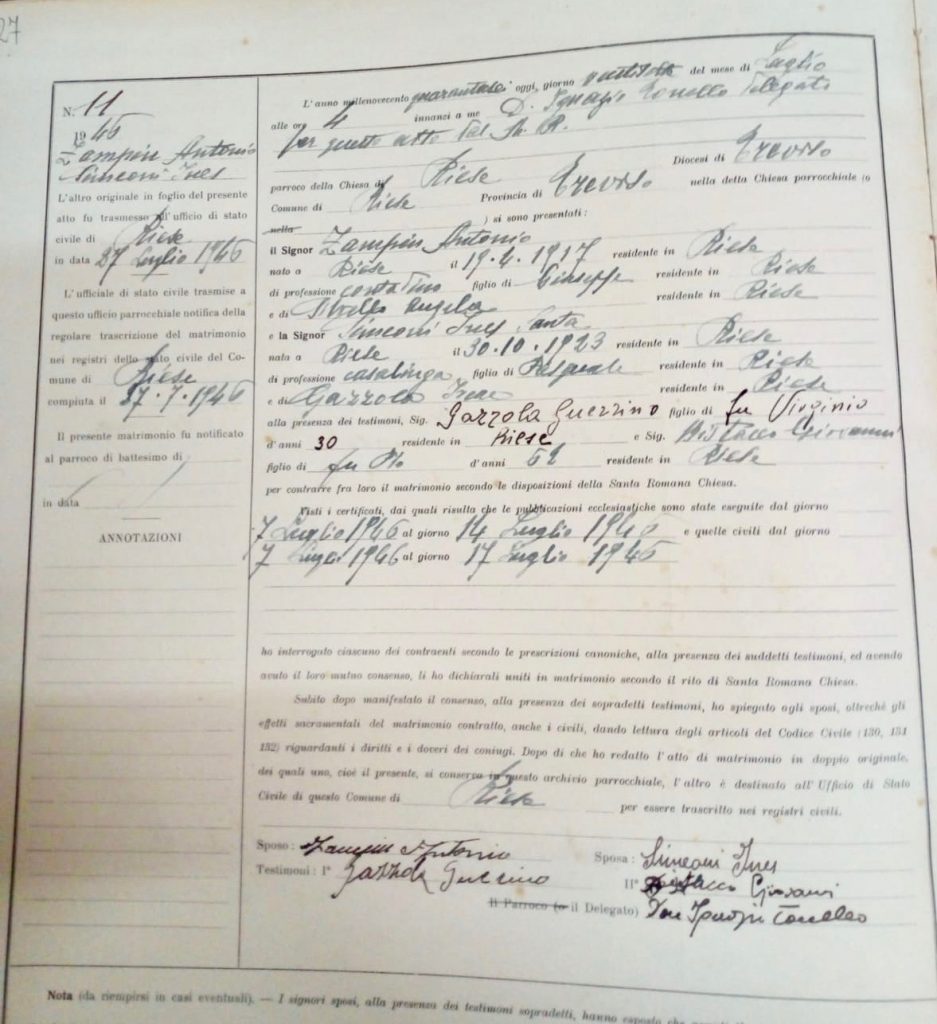 27
N. 11
1946
Zampin Antonio
Simeoni Ines
L'altro originale in foglio del presente
atto fu trasmesso all'ufficio di stato
civile di Riese
in data 27 Luglio 1946
L'ufficiale di stato civile trasmise a
questo ufficio parrocchiale notifica della
regolare trascrizione del matrimonio
nei registri dello stato civile del Co-
mune di Riese
compiuta il 27.7.1946
Il presente matrimonio fu notificato
al parroco di battesimo di
in data
ANNOTAZIONI
L'anno millenovecento quarantasei oggi, giorno ventisette del mese di Luglio
alle ore 4 innanzi a me D. Ignazio Tonello Delegato
per questo atto dal
parroco della Chiesa di Riese Diocesi di Treviso
Comune di Riese Provincia di Treviso nella detta Chiesa parrocchiale (o
nella ) si sono presentati:
il Signor Zampin Antonio
nato a Riese il 19.4.1917 residente in Riese
di professione contadino figlio di Giuseppe residente in Riese
e di Angela residente in Riese
e la Signor Simeoni Ines Santa
nata a Riese il 30.10.1923 residente in Riese
di professione casalinga figlia di Pasquale residente in Riese
e di Gazzola residente in Riese
alla presenza dei testimoni, Sig. Gazzola Guerrino figlio di fu Virginio
d'anni 30 residente in Riese e Sig. Giovanni
figlio di fu Pio d'anni 62 residente in Riese
per contrarre fra loro il matrimonio secondo le disposizioni della Santa Romana Chiesa.
Visti i certificati, dai quali risulta che le pubblicazioni ecclesiastiche sono state eseguite dal giorno
7 Luglio 1946 al giorno 14 Luglio 1946 e quelle civili dal giorno
7 Luglio 1946 al giorno 17 Luglio 1946
ho interrogato ciascuno dei contraenti secondo le prescrizioni canoniche, alla presenza dei suddetti testimoni, ed avendo
avuto il loro mutuo consenso, li ho dichiarati uniti in matrimonio secondo il rito di Santa Romana Chiesa.
Subito dopo manifestato il consenso, alla presenza dei sopradetti testimoni, ho spiegato agli sposi, oltrechè gli
effetti sacramentali del matrimonio contratto, anche i civili, dando lettura degli articoli del Codice Civile (130, 131
132) riguardanti i diritti e i doveri dei coniugi. Dopo di che ho redatto l'atto di matrimonio in doppio originale,
dei quali uno, cioè il presente, si conserva in questo archivio parrocchiale, l'altro è destinato all'Ufficio di Stato
Civile di questo Comune di Riese per essere trascritto nei registri civili.
Sposo: Zampin Antonio Sposa: Simeoni Ines
Testimoni: I° Gazzola Guerrino II° Giovanni
Il Parroco (o il Delegato) Don Ignazio Tonello
Nota (da riempirsi in casi eventuali). — I signori sposi, alla presenza dei testimoni sopradetti, hanno esposto che